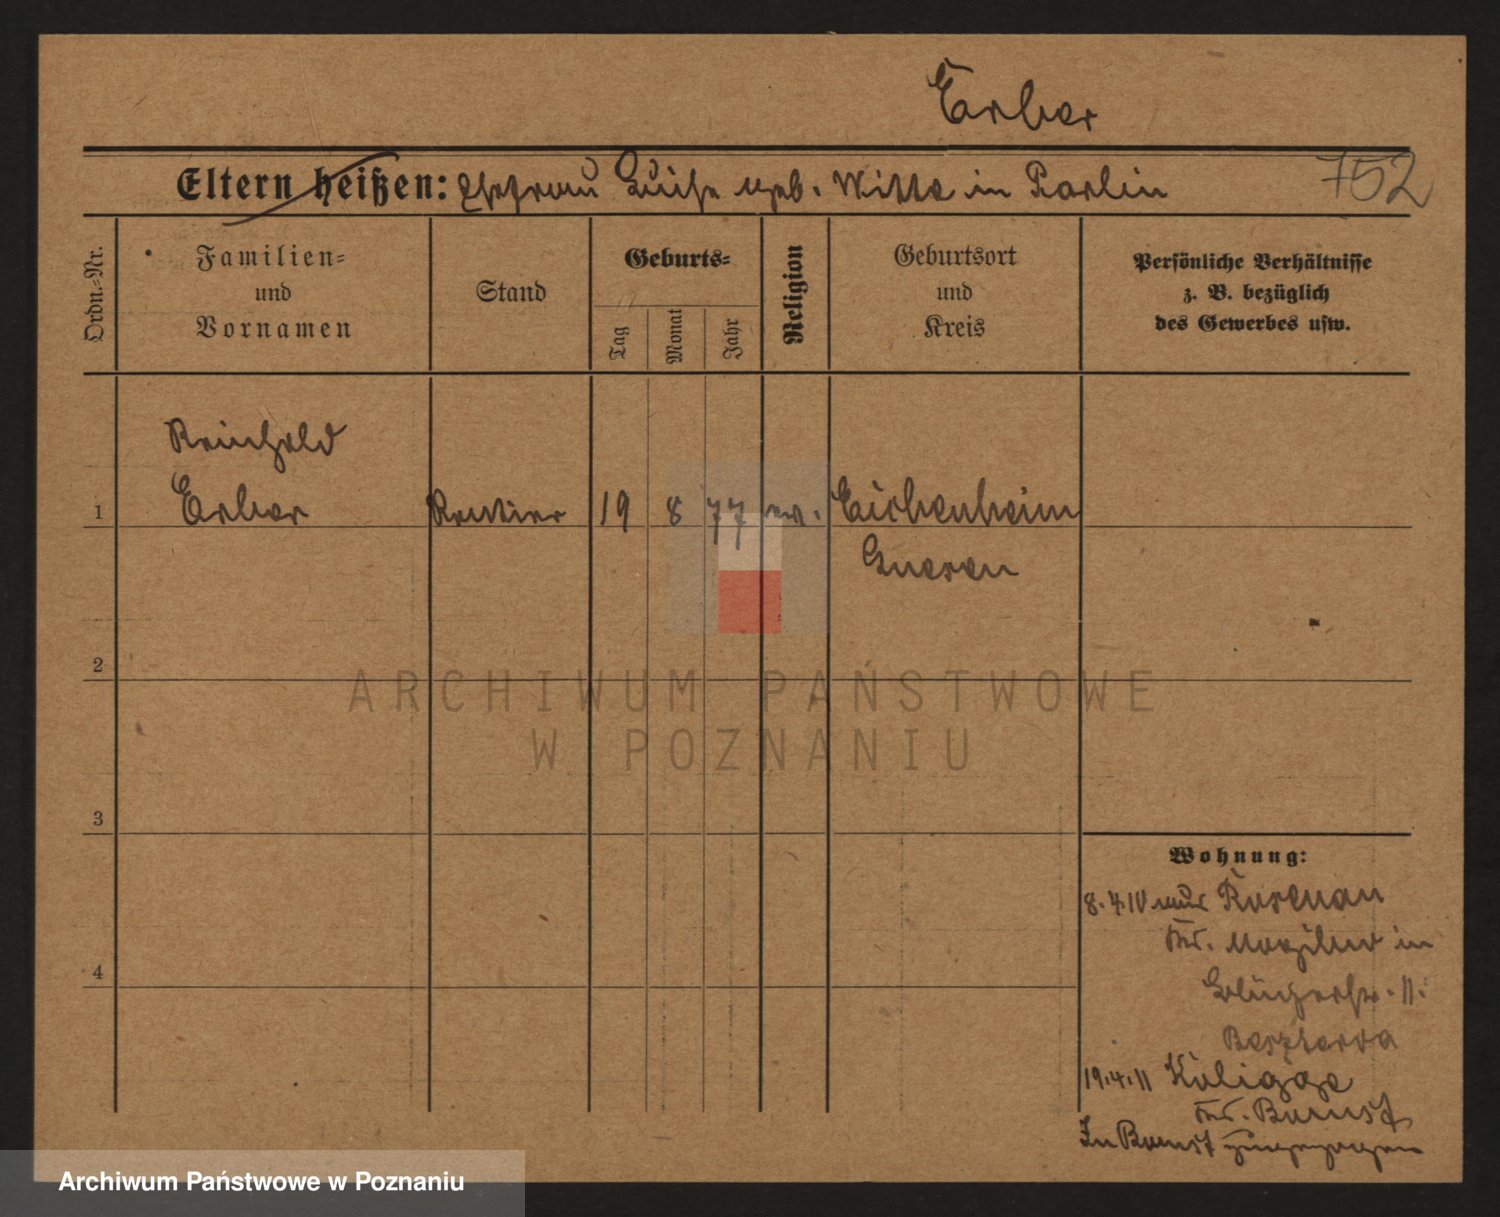 Erber
Eltern heißen: Ehefrau Luise geb. Witte in Parlin 752
Ordn.-Nr.
Familien-
und
Vornamen
Stand
Geburts-
Tag
Monat
Jahr
Religion
Geburtsort
und
Kreis
Persönliche Verhältnisse
z. B. bezüglich
des Gewerbes usw.
Reinhold
1 Erber Rentier 19 8 77 ev. Eichenheim
Gnesen
2
3
4
Wohnung:
8.4.10 Rosenau
Kr. Mogilno in
11.
19.4.11
Kr. Bomst
In Bomst zugezogen
ARCHIWUM PAŃSTWOWE
W POZNANIU
Archiwum Państwowe w Poznaniu